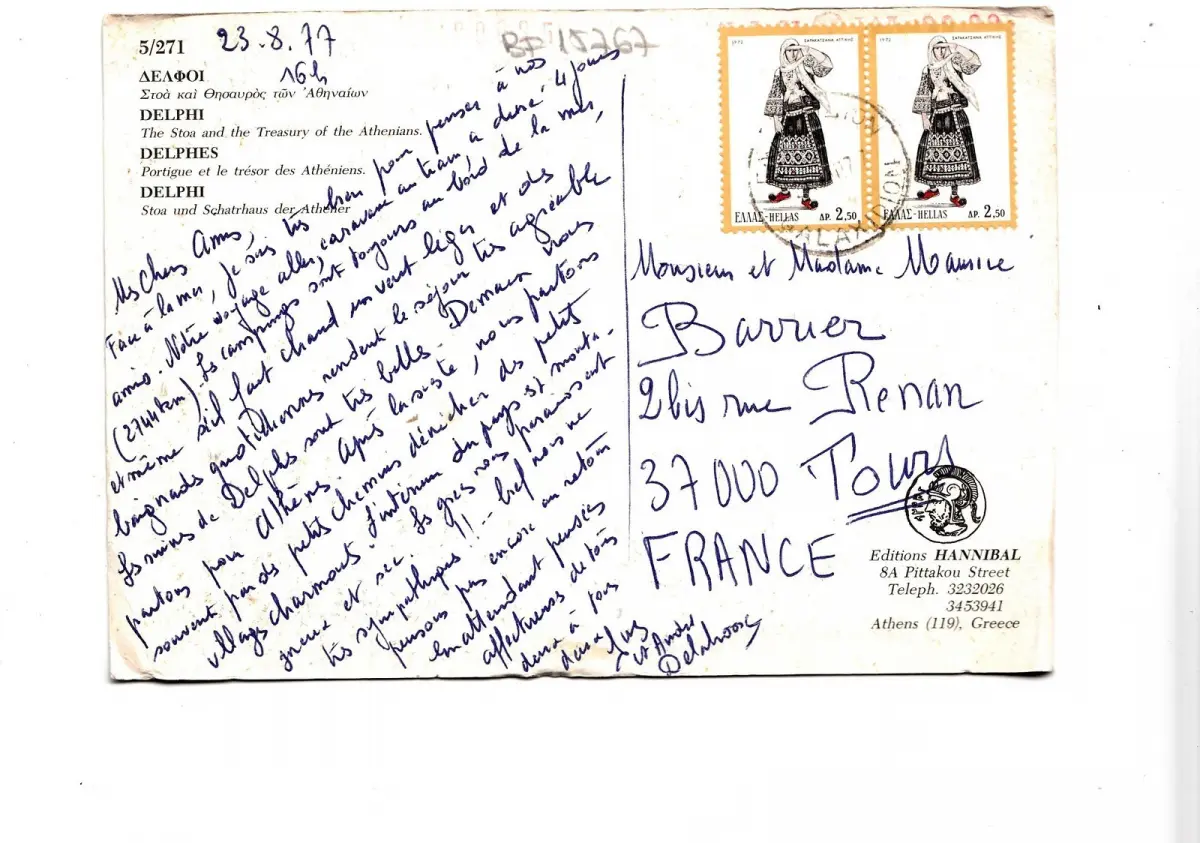 5/271
23.8.77
16h
BF 15767
ΔΕΛΦΟΙ
Στοὰ καὶ Θησαυρὸς τῶν Ἀθηναίων
DELPHI
The Stoa and the Treasury of the Athenians.
DELPHES
Portigue et le trésor des Athéniens.
DELPHI
Stoa und Schatrhaus der Athener
Mes chers Amis,
Face à la mer, je suis très bien pour penser à nos
amis. Notre voyage aller, caravane au train a duré 4 jours
(2744km). Les campings sont toujours au bord de la mer,
et même s'il fait chaud un vent léger et des
baignades quotidiennes rendent le séjour très agréable
Les ruines de Delphes sont très belles. Demain nous
partons pour Athènes. Après la sieste, nous partons
souvent par de petits chemins dénicher des petits
villages charmants. L'intérieur du pays est monta-
gneux et sec. Les grecs nous paraissent
très sympathiques !! -- bref nous ne
pensons pas encore au retour
En attendant pensées
affectueuses de tous
deux à tous
deux
et André
Delahoos
1972
ΣΑΡΑΚΑΤΣΑΝΑ ΑΤΤΙΚΗΣ
ΕΛΛΑΣ-HELLAS ΔΡ. 2,50
1972
ΣΑΡΑΚΑΤΣΑΝΑ ΑΤΤΙΚΗΣ
ΕΛΛΑΣ-HELLAS ΔΡ. 2,50
GALAXIDION
Monsieur et Madame Maurice
Barrier
2bis rue Renan
37000 Tours
FRANCE
Editions HANNIBAL
8A Pittakou Street
Teleph. 3232026
3453941
Athens (119), Greece